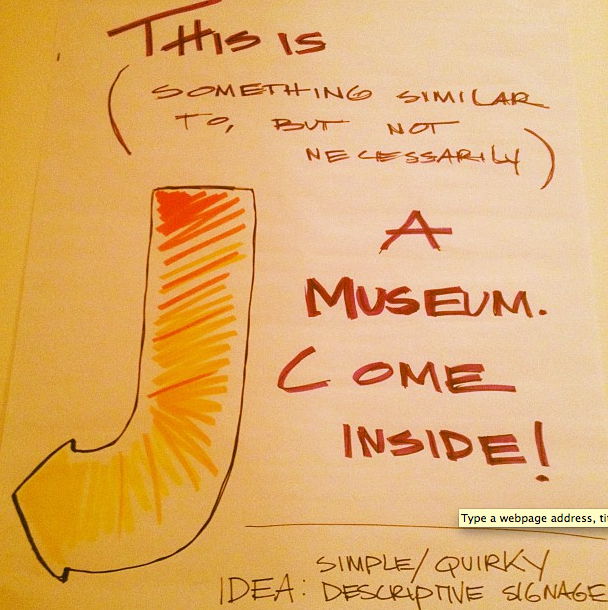 THIS IS
(SOMETHING SIMILAR
TO, BUT NOT
NECESSARILY)
A
MUSEUM.
COME
INSIDE!
Type a webpage address, ti
SIMPLE/QUIRKY
IDEA: DESCRIPTIVE SIGNAGE